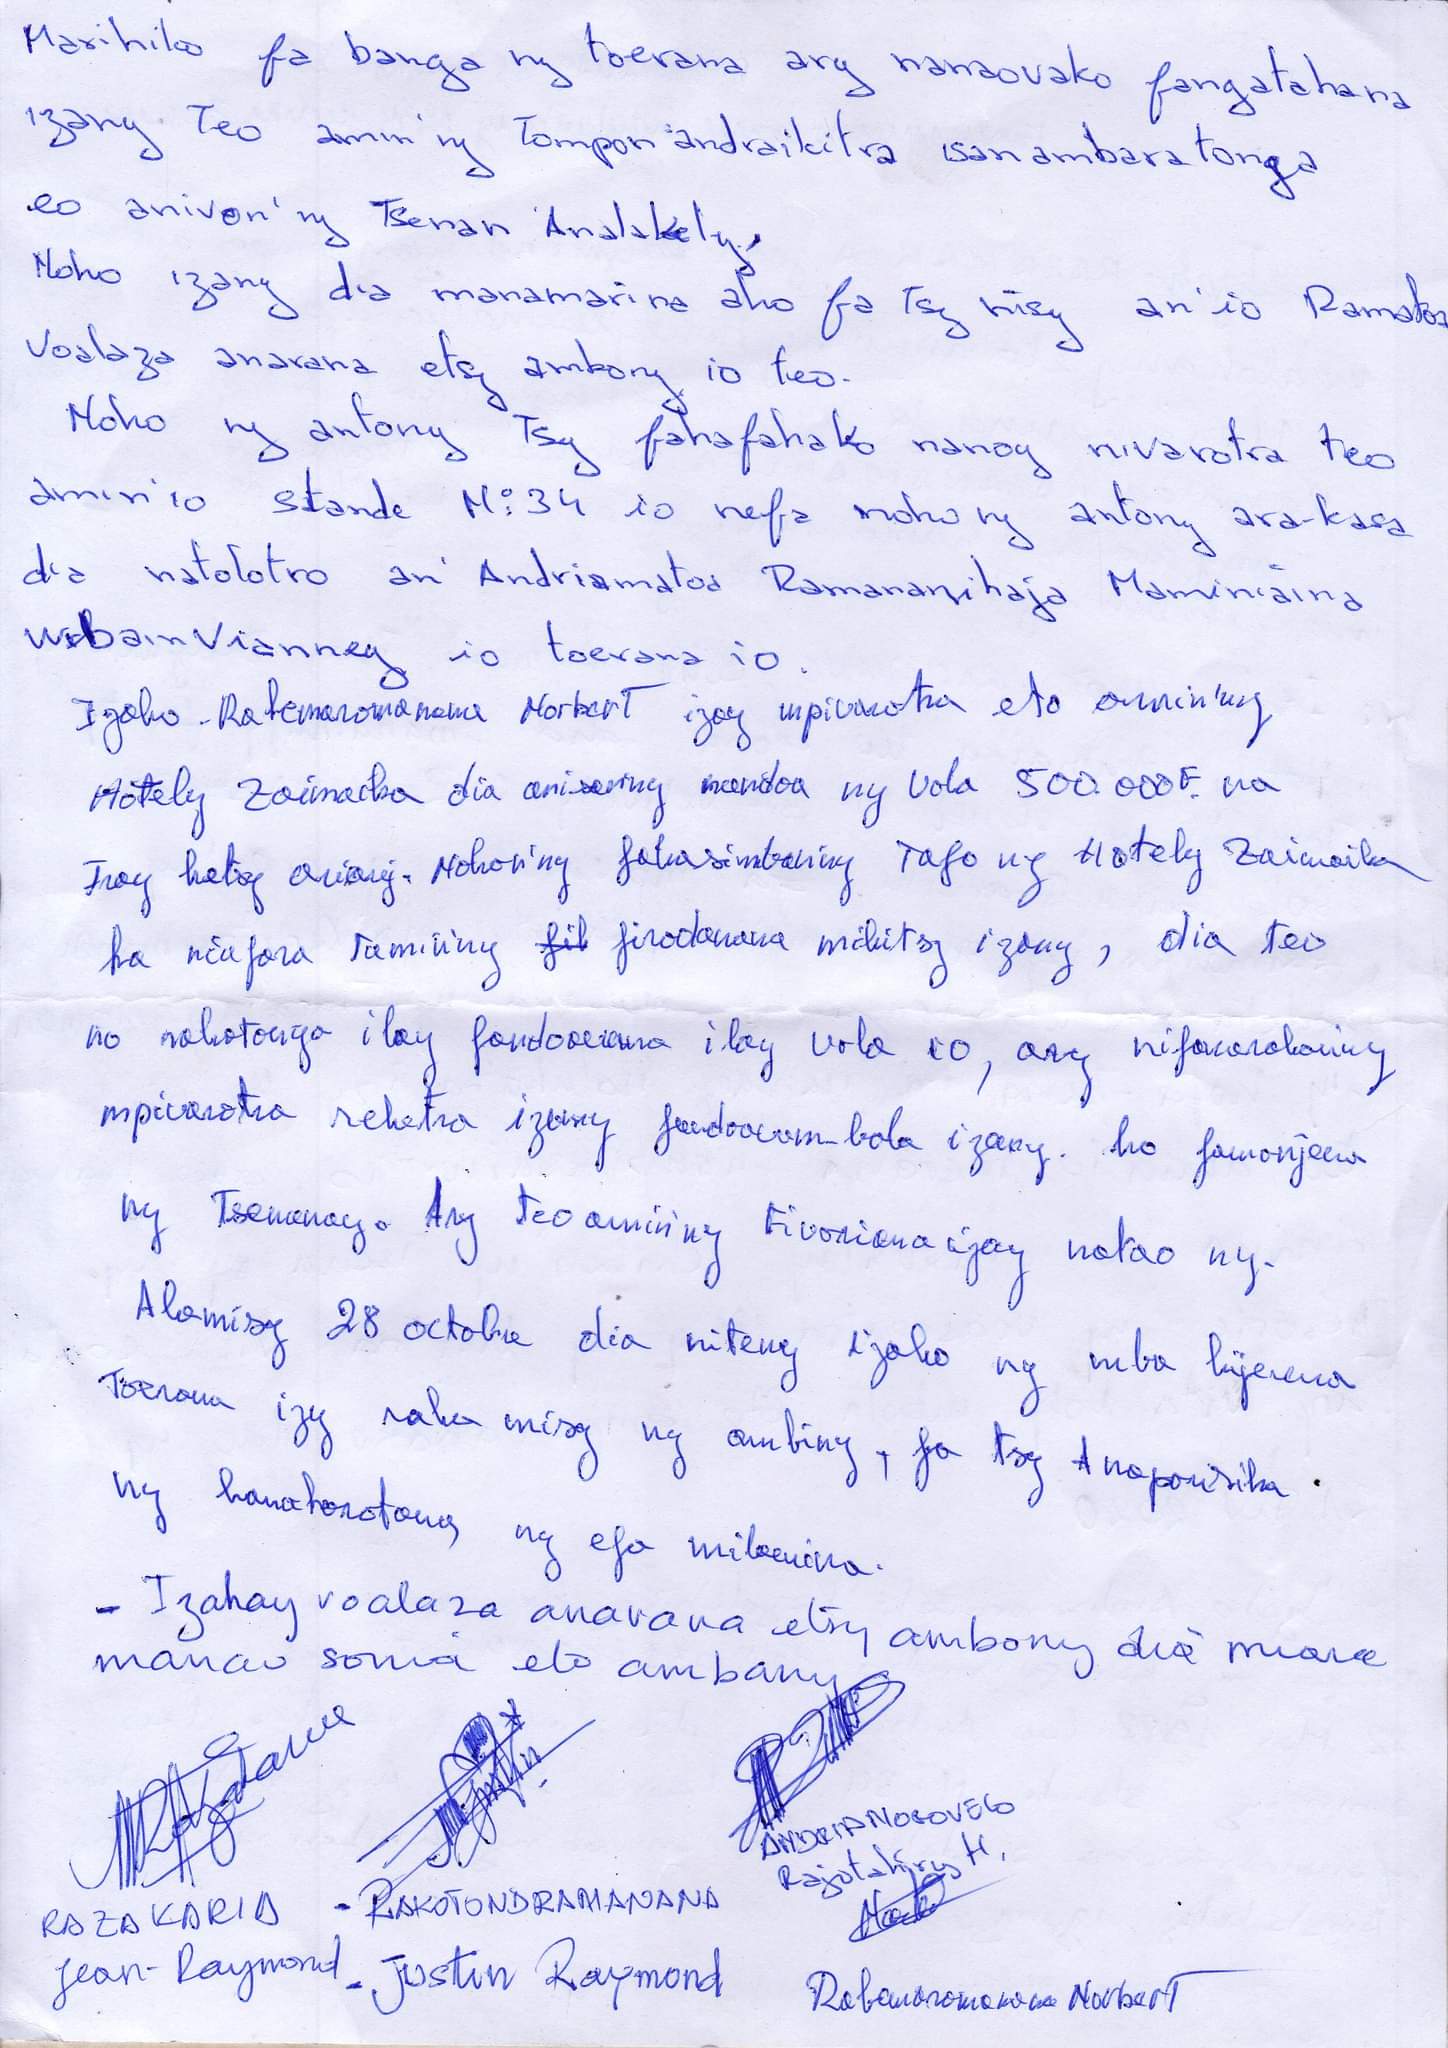 Marihiko fa banga ny toerana ary nanaovako fangatahana
izany Teo amin'ny Tompon'andraikitra isanambaratonga
eo anivon'ny Tsenan'Analakely,
Noho izany dia manamarina aho fa Tsy nisy an'io Ramatoa
Voalaza anarana etsy ambony io teo.
Noho ny antony Tsy fahafahako nanoy nivarotra teo
amin'io stande N°:34 io nefa noho ny antony ara-kasa
dia natolotro an'Andriamatoa Ramananjihaja Maminiaina
Urbain Vianney io toerana io.
Izaho - Rabemaromanana Norbert izay mpivarotra eto amin'ny
Hotely Zaimaika dia anisanny nandoa ny Vola 500.000F. na
Iray hetsy ariary. Nohon'ny fahasimban'ny Tafo ny Hotely Zaimaika
ka niafara Tamin'ny firodanana mihitsy izany, dia teo
no nahatonga ilay fandoavana ilay vola io, ary nifanarahan'ny
mpivarotra rehetra izany fandoavam-bola izany. ho famonjena
ny Tsenanay. Ary teo amin'ny Fivoriana izay natao ny.
Alamisy 28 octobre dia niteny izaho ny mba hijerena
Toerana izy raha misy ny ambiny, fa tsy Anaparisika
ny hanakorotana, ny efa milamina.
- Izahay voalaza anarana etsy ambony dia miara
manao sonia eto ambany
RAZAKARIA - RAKOTONDRAMANANA
Jean-Raymond - Justin Raymond
ANDRIANOROVELO
Rajotahiry H.
Rabemaromanana Norbert